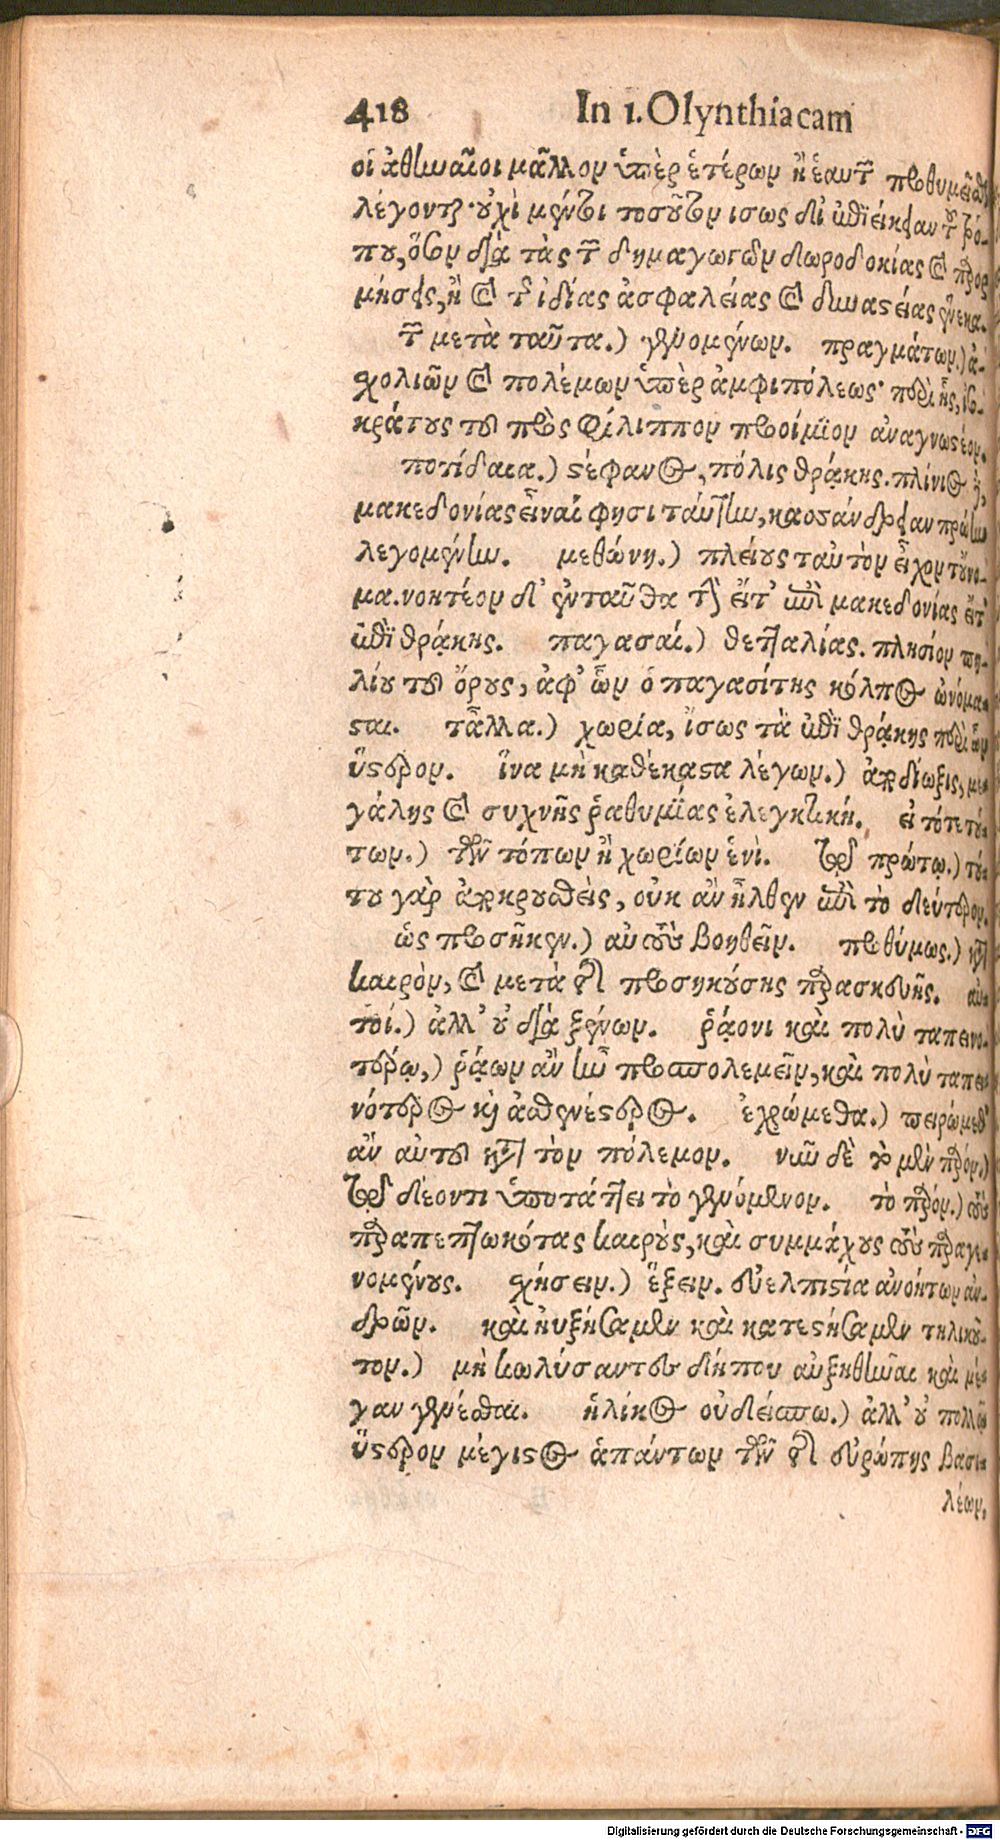 418 In 1. Olynthiacam
οἱ ἀθηναῖοι μᾶλλον ὑπὲρ ἑτέρων ἢ ἑαυτῶν προθυμεῖσθαι
λέγονται· οὐχὶ μέντοι τοσοῦτον ἴσως δι' ἐπιείκειαν τοῦ τρό-
που, ὅσον διὰ τὰς τῶν δημαγωγῶν δωροδοκίας καὶ
καὶ τῆς ἰδίας ἀσφαλείας καὶ δυναστείας ἕνεκα.
τῶν μετὰ ταῦτα.) γενομένων. πραγμάτων.) ἀ-
σχολιῶν καὶ πολέμων ὑπὲρ ἀμφιπόλεως· περὶ ἧς, ἰσο-
κράτους τὸ πρὸς φίλιππον προοίμιον ἀναγνωστέον.
ποτίδαια.) στέφανος, πόλις θράκης. πλίνιος
μακεδονίας εἶναί φησι ταύτην, κασσάνδρειαν πρώην
λεγομένην. μεθώνη.) πλείους ταὐτὸν εἶχον τοὔνο-
μα. νοητέον δ' ἐνταῦθα τὴν εἴτ' ἐπὶ μακεδονίας εἴτ'
ἐπὶ θράκης. παγασαί.) θετταλίας. πλησίον πη-
λίου τοῦ ὄρους, ἀφ' ὧν ὁ παγασίτης κόλπος ὠνόμα-
σται. τἆλλα.) χωρία, ἴσως τὰ ἐπὶ θράκης περὶ ὧν
ὕστερον. ἵνα μὴ καθέκαστα λέγων.) παραδίωξις, με-
γάλης καὶ συχνῆς ῥαθυμίας ἐλεγκτική. εἰ τότε τού-
των.) τῶν τόπων ἢ χωρίων ἑνὶ. τῷ πρώτῳ.) τού-
του γὰρ ἀποκρουσθεὶς, οὐκ ἂν ἦλθεν ἐπὶ τὸ δεύτερον.
ὡς προσῆκεν.) αὐτοὺς βοηθεῖν. προθύμως.) κατὰ
καιρὸν, καὶ μετὰ τῆς προσηκούσης παρασκευῆς. αὐ-
τοί.) ἀλλ' οὐ διὰ ξένων. ῥάονι καὶ πολὺ ταπεινο-
τέρῳ,) ῥάων ἂν ἦν προσπολεμεῖν, καὶ πολὺ ταπει-
νότερος καὶ ἀσθενέστερος. ἐχρώμεθα.) πειρώμεθ'
ἂν αὐτοῦ κατὰ τὸν πόλεμον. νῦν δὲ τὸ μὲν παρόν.)
τῷ δέοντι ὑποτάττει τὸ γενόμενον. τὸ παρόν.) τοὺς
παραπεπτωκότας καιροὺς, καὶ συμμάχους τοὺς παραγε-
νομένους. σχήσειν.) ἕξειν. εὐελπιστία ἀνοήτων ἀν-
δρῶν. καὶ ηὐξήσαμεν καὶ κατεστήσαμεν τηλικοῦ-
τον.) μὴ κωλύσαντες δήπου αὐξηθῆναι καὶ μέ-
γαν γενέσθαι. ἡλίκος οὐδείς πω.) ἀλλ' οὐ πολλῷ
ὕστερον μέγιστος ἁπάντων τῶν τῆς εὐρώπης βασι-
λέων,
Digitalisierung gefördert durch die Deutsche Forschungsgemeinschaft - DFG